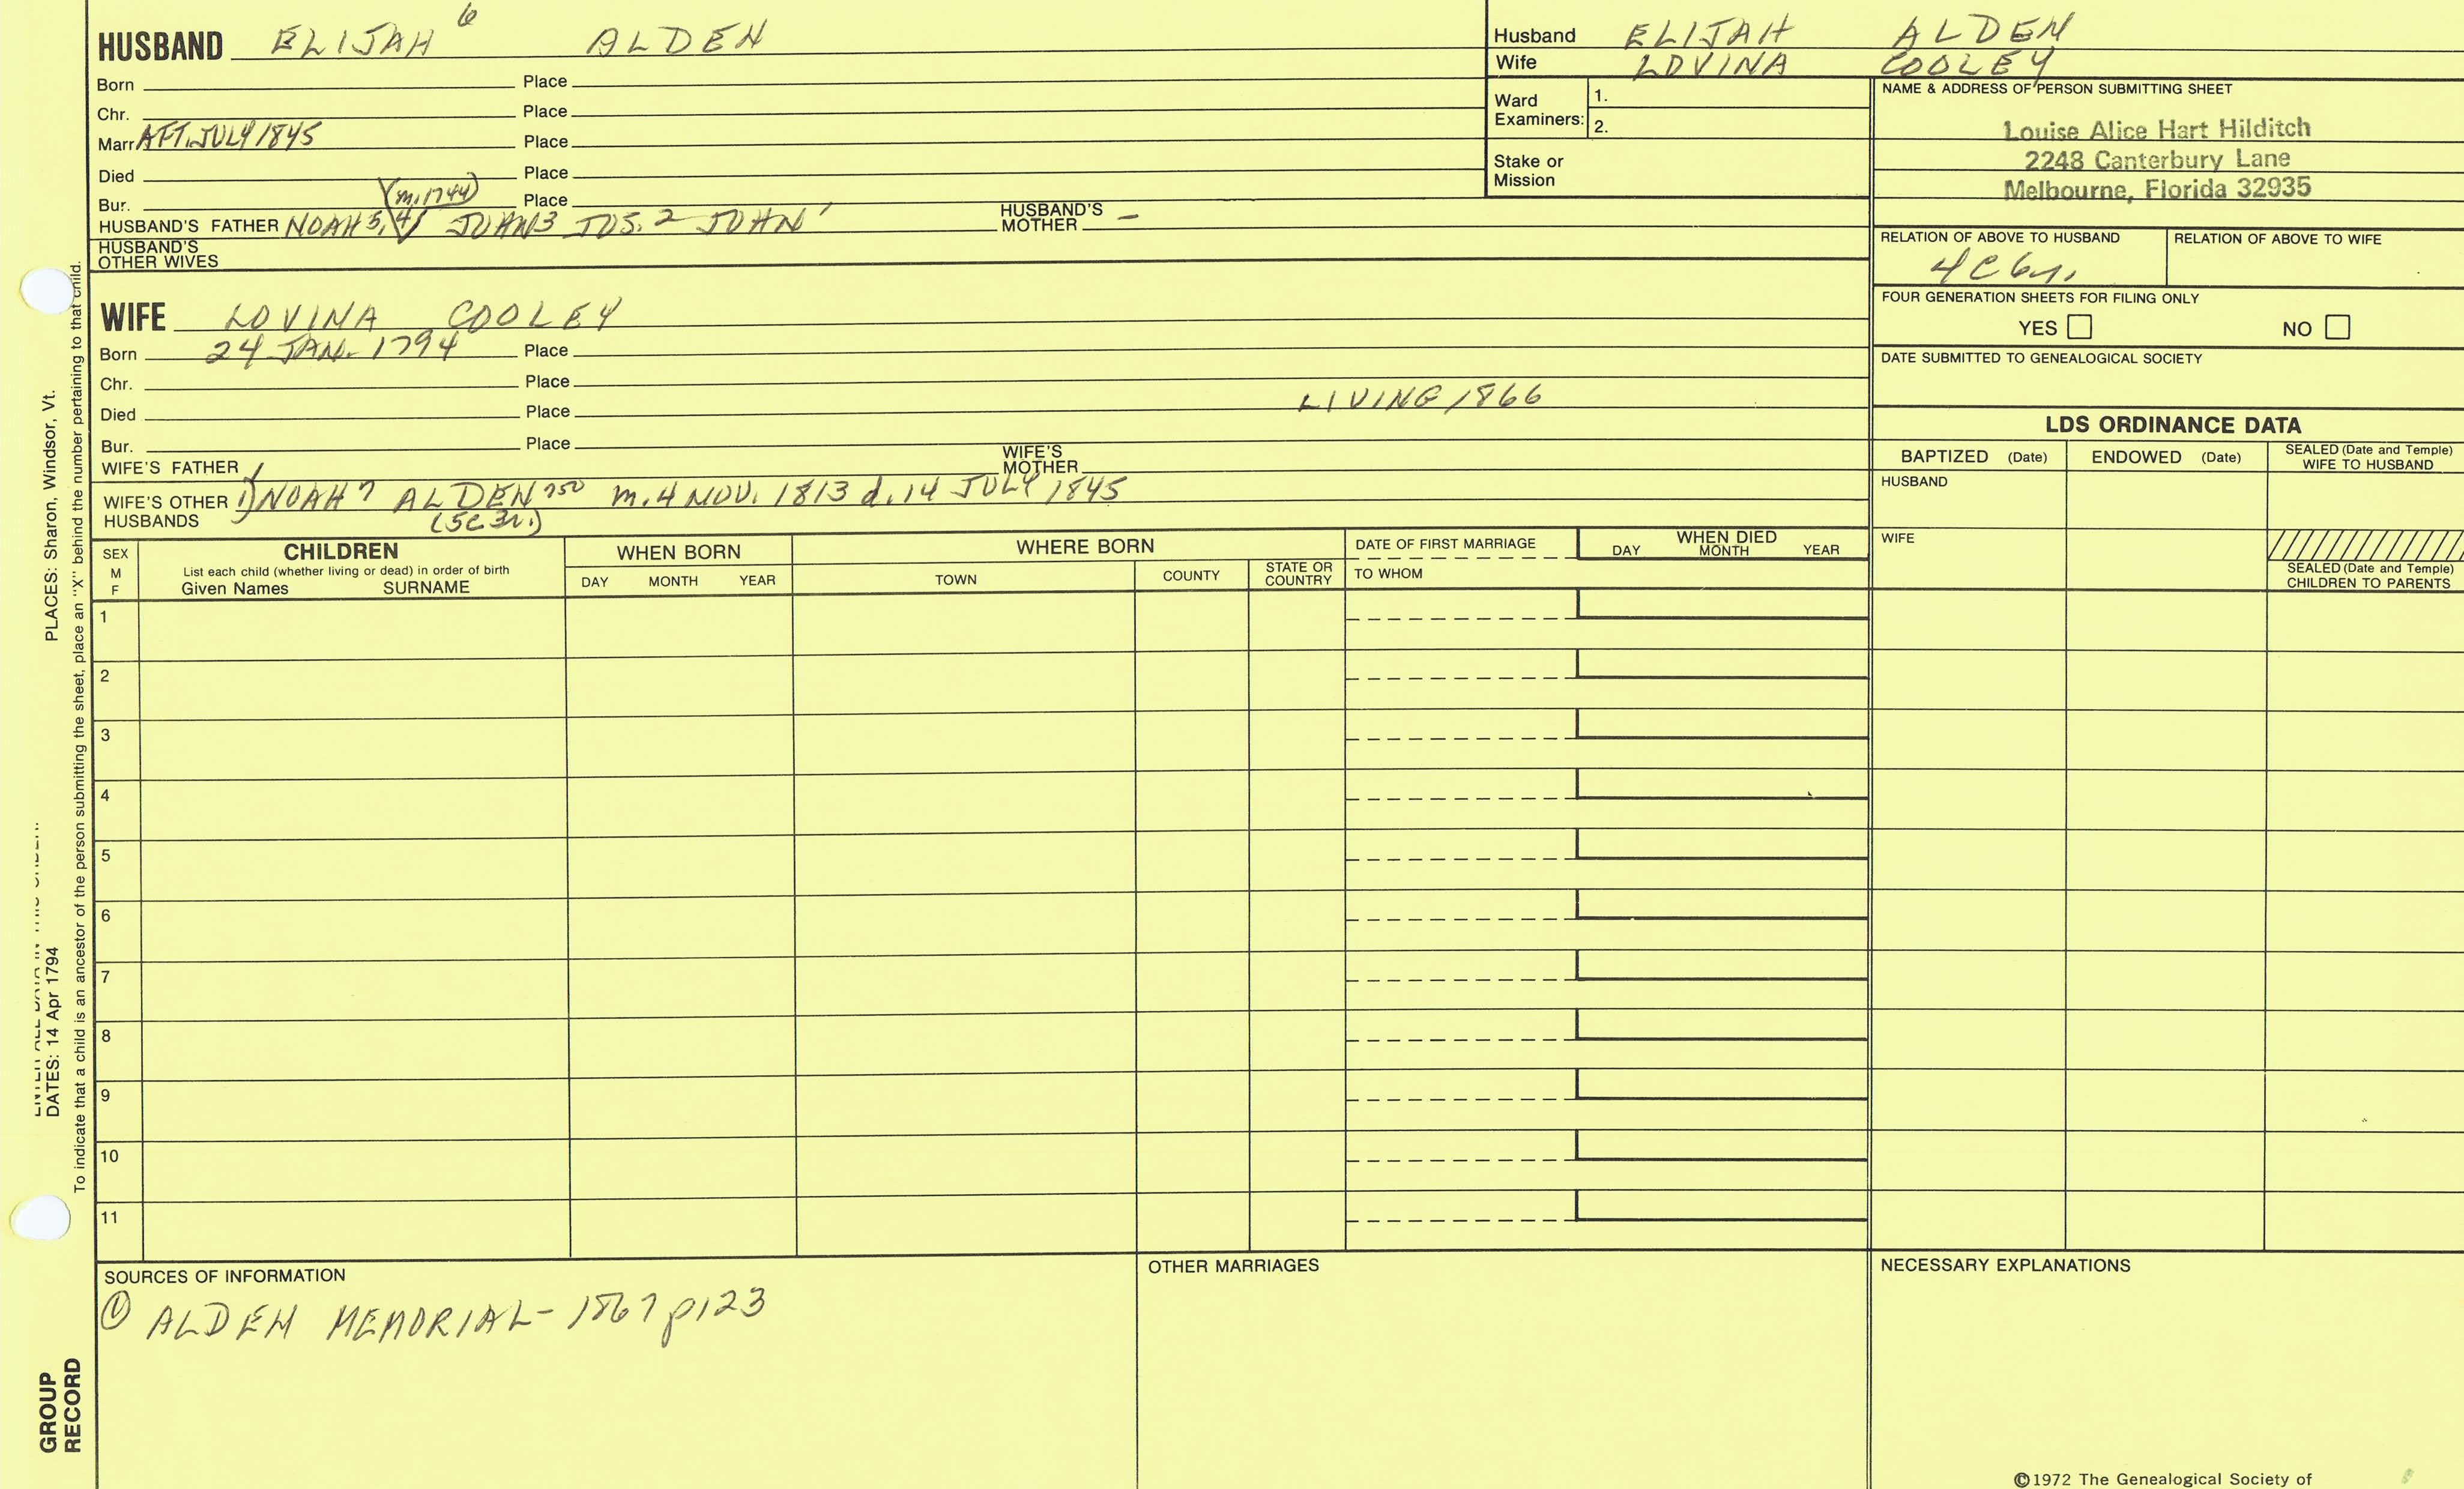 HUSBAND ELIJAH 6 ALDEN
Born Place
Chr. Place
Marr. AFT. JULY 1845 Place
Died Place
(m. 1744)
Bur. Place
HUSBAND'S FATHER NOAH 5, 4 JOHN 3 JOS. 2 JOHN 1 HUSBAND'S MOTHER –
HUSBAND'S OTHER WIVES
WIFE LOVINA COOLEY
Born 24 JAN. 1794 Place
Chr. Place
Died Place LIVING 1866
Bur. Place
WIFE'S FATHER WIFE'S MOTHER
WIFE'S OTHER HUSBANDS 1) NOAH 7 ALDEN 750 m. 4 NOV. 1813 d. 14 JULY 1845
(5C 3r.)
Husband ELIJAH ALDEN
Wife LOVINA COOLEY
Ward Examiners: 1.
2.
Stake or Mission
NAME & ADDRESS OF PERSON SUBMITTING SHEET
Louise Alice Hart Hilditch
2248 Canterbury Lane
Melbourne, Florida 32935
RELATION OF ABOVE TO HUSBAND RELATION OF ABOVE TO WIFE
4C 6r.
FOUR GENERATION SHEETS FOR FILING ONLY
YES NO
DATE SUBMITTED TO GENEALOGICAL SOCIETY
LDS ORDINANCE DATA
BAPTIZED (Date) ENDOWED (Date) SEALED (Date and Temple) WIFE TO HUSBAND
HUSBAND
WIFE
SEALED (Date and Temple) CHILDREN TO PARENTS
SEX M F
CHILDREN
List each child (whether living or dead) in order of birth
Given Names SURNAME
WHEN BORN
DAY MONTH YEAR
WHERE BORN
TOWN COUNTY STATE OR COUNTRY
DATE OF FIRST MARRIAGE
TO WHOM
WHEN DIED
DAY MONTH YEAR
1
2
3
4
5
6
7
8
9
10
11
SOURCES OF INFORMATION
① ALDEN MEMORIAL - 1867 p123
OTHER MARRIAGES
NECESSARY EXPLANATIONS
©1972 The Genealogical Society of
PLACES: Sharon, Windsor, Vt.
DATES: 14 Apr 1794
To indicate that a child is an ancestor of the person submitting the sheet, place an "X" behind the number pertaining to that child.
GROUP
RECORD